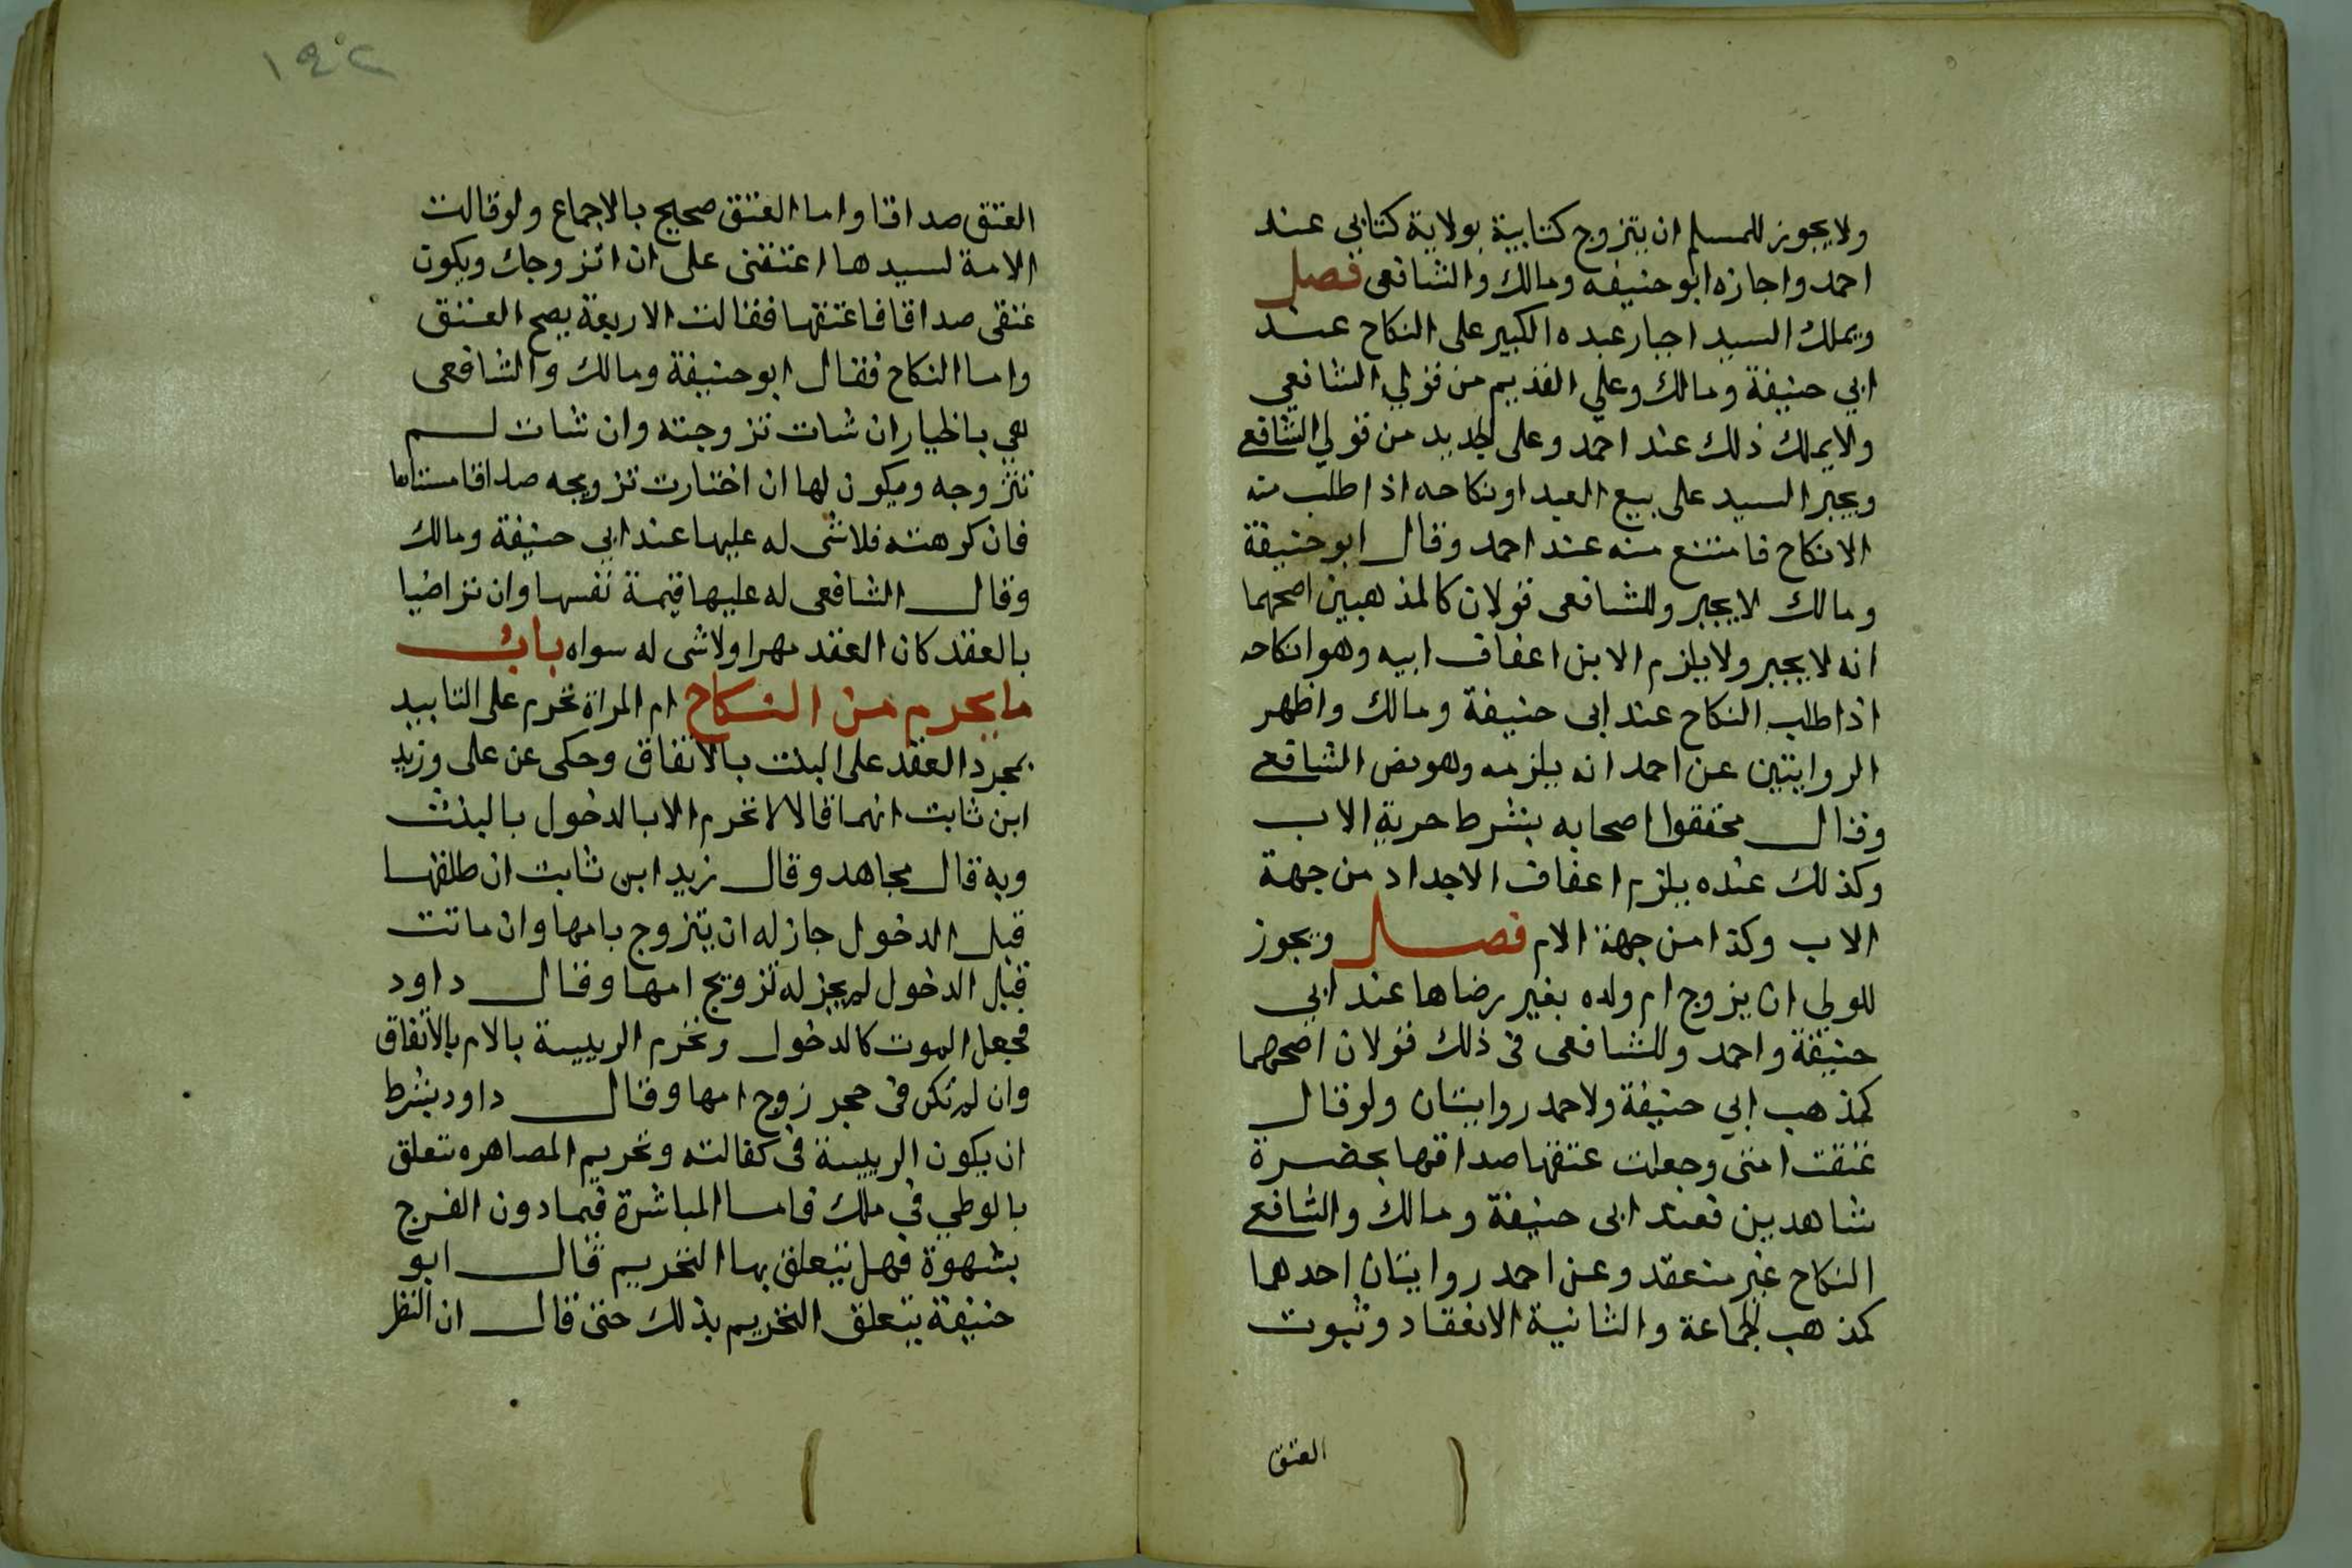 ولا يجوز للمسلم ان يتزوج كتابية بولاية كتابي عند
احمد واجازه ابو حنيفه ومالك والشافعى فصل
ويملك السيد اجبار عبده الكبير على النكاح عند
ابي حنيفة ومالك وعلي القديم من قولي الشافعي
ولايملك ذلك عند احمد وعلى الجديد من قولي الشافعي
ويجبر السيد على بيع العبد او نكاحه اذا طلب منه
الانكاح فامتنع منه عند احمد وقال ابو حنيفة
ومالك لا يجبر وللشافعى قولان كالمذهبين اصحهما
انه لا يجبر ولا يلزم الابن اعفاف ابيه وهو انكاحه
اذا طلب النكاح عند ابى حنيفة ومالك واظهر
الروايتين عن احمد انه يلزمه وهو نص الشافعي
وقال محققوا اصحابه بشرط حرية الاب
وكذلك عنده يلزم اعفاف الاجداد من جهة
الاب وكذا من جهة الام فصل ويجوز
للولي ان يزوج ام ولده بغير رضاها عند ابي
حنيفة واحمد وللشافعى فى ذلك قولان اصحهما
كمذهب ابي حنيفة ولاحمد روايتان ولو قال
عتقت امتى وجعلت عتقها صداقها بحضرة
شاهدين فعند ابى حنيفة ومالك والشافعي
النكاح غير منعقد وعن احمد روايتان احدهما
كمذهب الجماعة والثانية الانعقاد وثبوت
العتق
١٤٢
العتق صداقا واما العتق صحيح بالاجماع ولو قالت
الامة لسيدها اعتقنى على ان اتزوجك ويكون
عتقى صداقا فاعتقها فقالت الاربعة يصح العتق
واما النكاح فقال ابو حنيفة ومالك والشافعى
هي بالخيار ان شات تزوجته وان شات لم
تتزوجه ويكون لها ان اختارت تزويجه صداقا مستانفا
فان كرهته فلا شى له عليها عند ابي حنيفة ومالك
وقال الشافعى له عليها قيمة نفسها وان تراضيا
بالعقد كان العقد مهرا ولا شى له سواه باب
ما يحرم من النكاح ام المراة تحرم على التابيد
بمجرد العقد على البنت بالاتفاق وحكى عن على وزيد
ابن ثابت انهما قالا لا تحرم الا بالدخول بالبنت
وبه قال مجاهد وقال زيد ابن ثابت ان طلقها
قبل الدخول جاز له ان يتزوج بامها وان ماتت
قبل الدخول لم يجز له تزويج امها وقال داود
فجعل الموت كالدخول وتحرم الربيبة بالام بالاتفاق
وان لم تكن فى حجر زوج امها وقال داود بشرط
ان يكون الربيبة فى كفالته وتحريم المصاهره تتعلق
بالوطي في ملك فاما المباشرة فيما دون الفرج
بشهوة فهل يتعلق بها التحريم قال ابو
حنيفة يتعلق التحريم بذلك حتى قال ان النظر